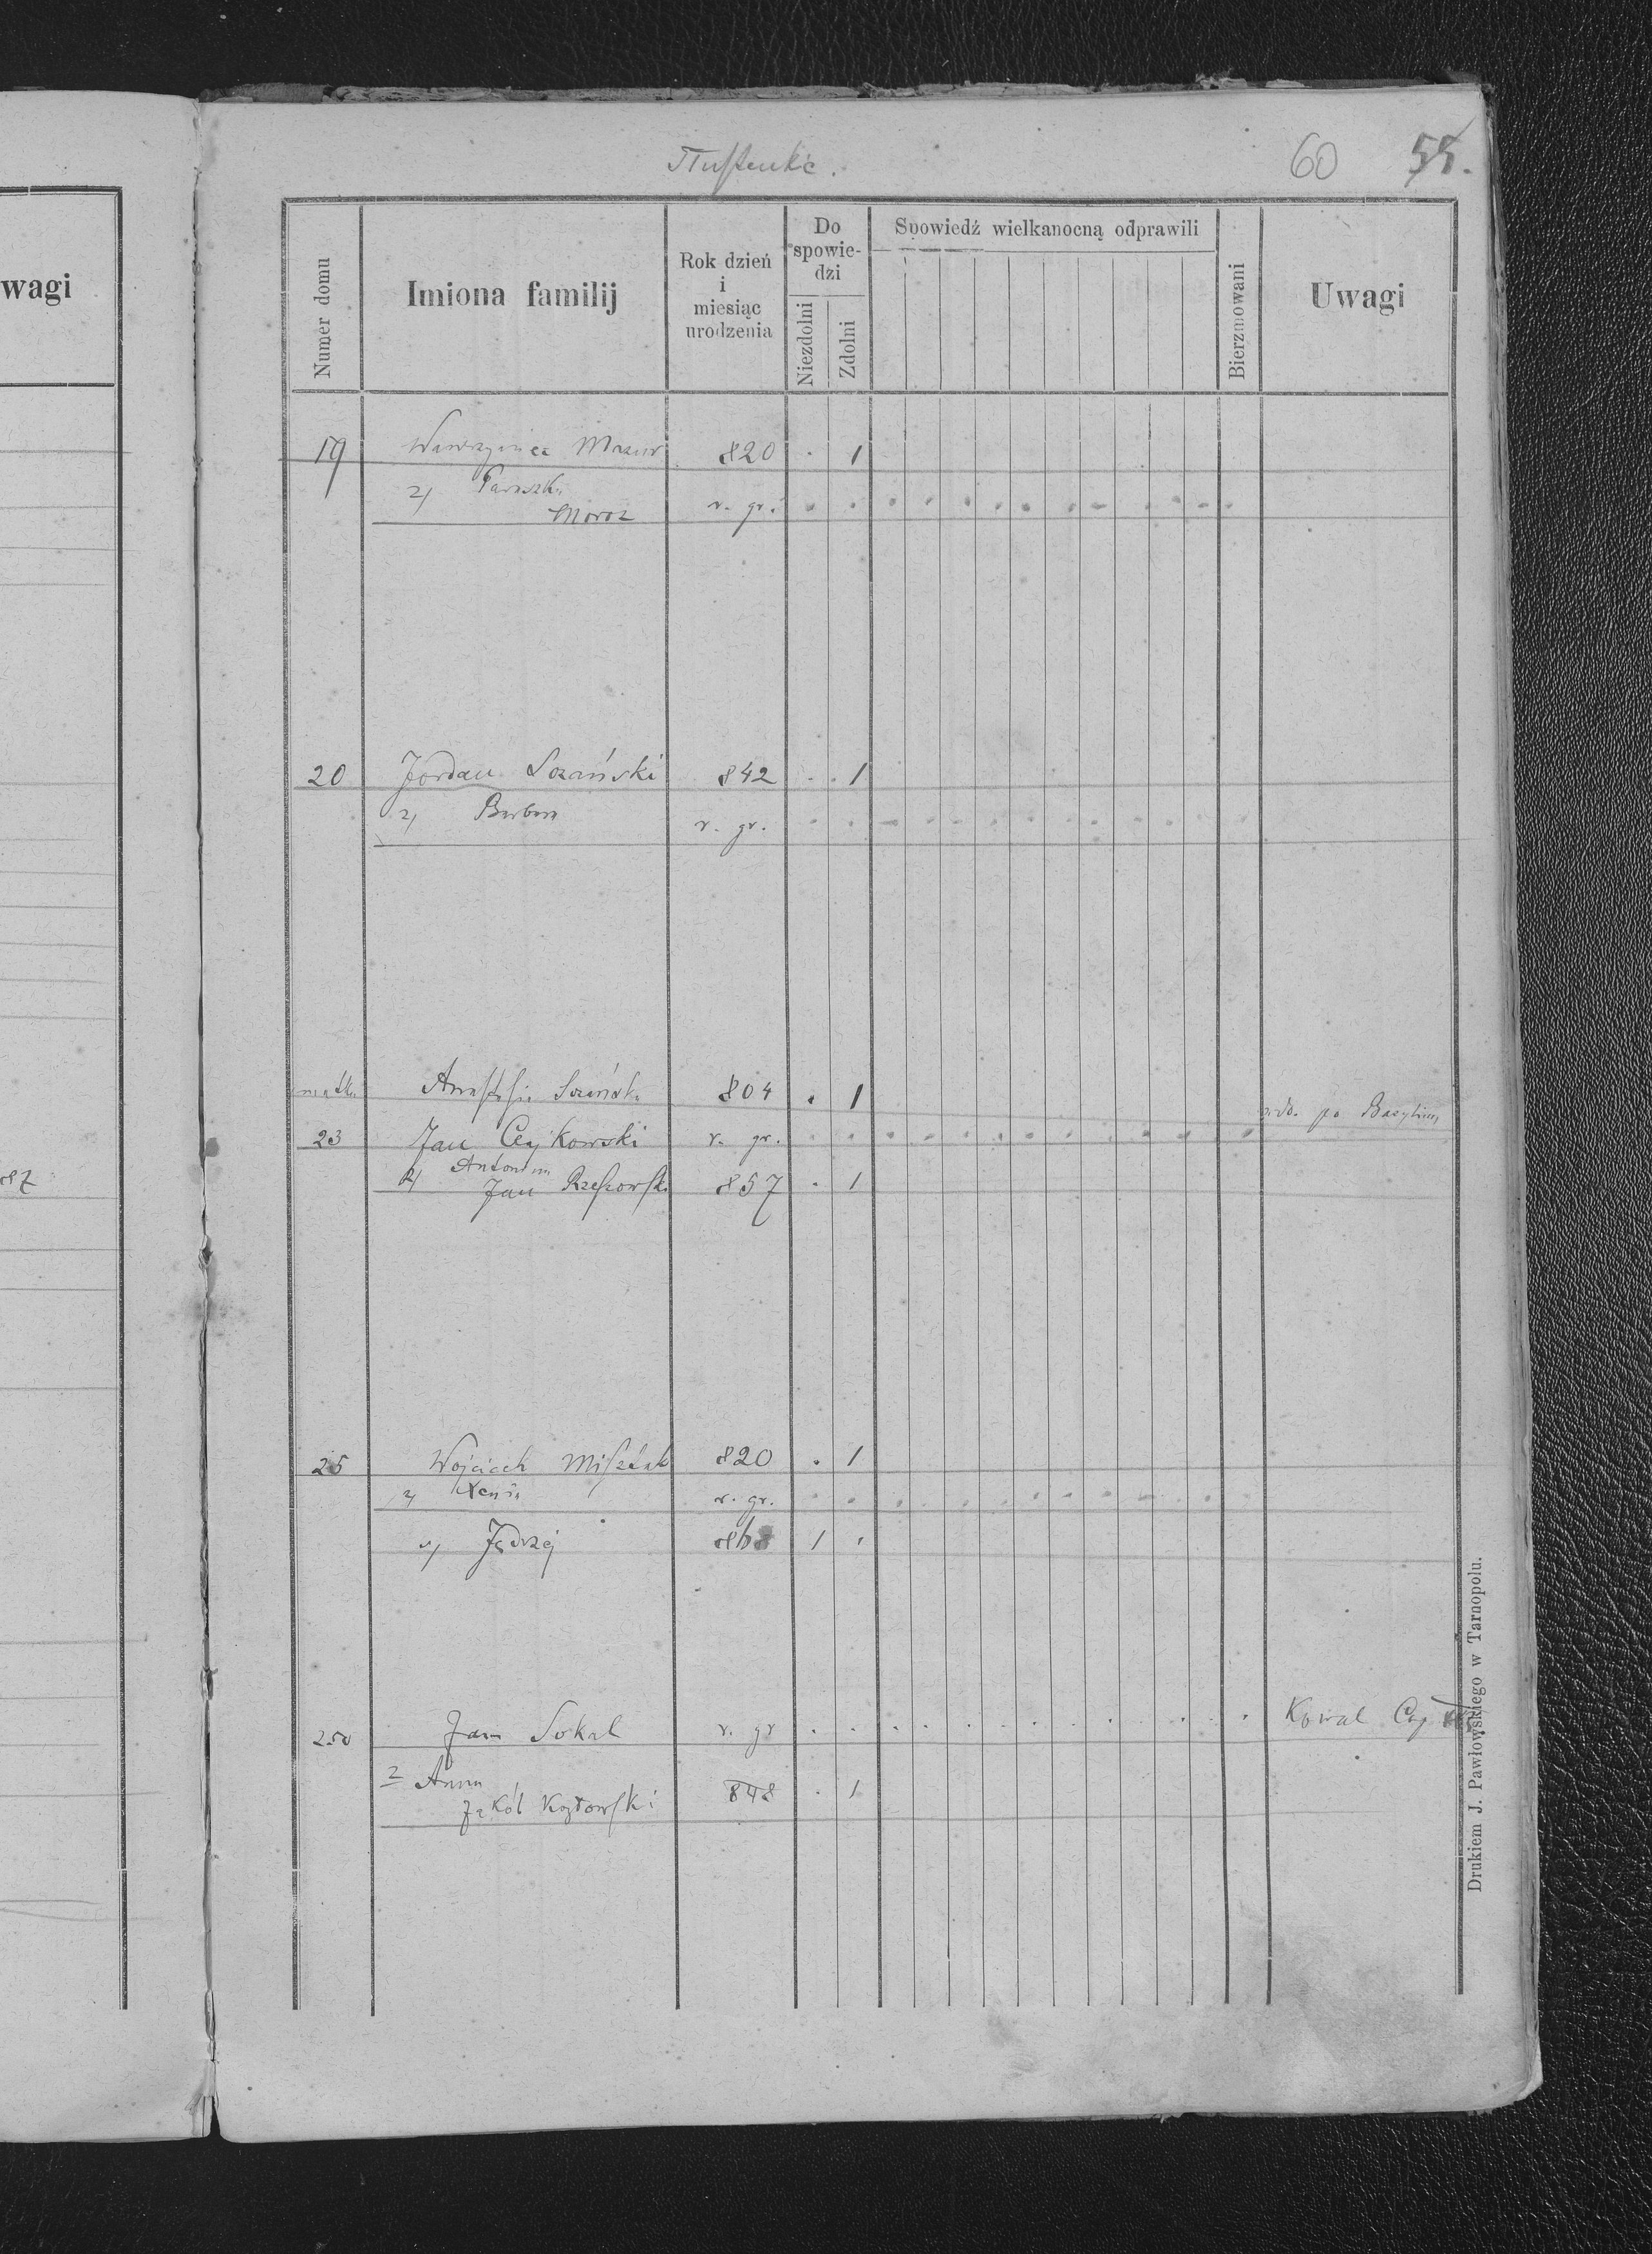 wagi
87
Tłustenkie.
60 55.
Numer domu
Imiona familij
Rok dzień
i
miesiąc
urodzenia
Do
spowie-
dzi
Niezdolni
Zdolni
Spowiedź wielkanocną odprawili
Bierzmowani
Uwagi
19 Wawrzyniec Mazur 820 . 1
2) Paraszka
Moroz r. gr.
20 Jordan Lozański 842 . . 1
2) Barbara r. gr.
matka Anastasia 804 . 1
wdo. po Bazylim
23 Jan Czykowski r. gr.
2) Antonina
Jan Rzeszowski 857 . 1
25 Wojciech Miszczak 820 . 1
2) Xenia r. gr.
Jędrzej 868 1 .
250 Jan Sokal r. gr Kowal
2 Anna
Jakób Kozłowski 848 . 1
Drukiem J. Pawłowskiego w Tarnopolu.